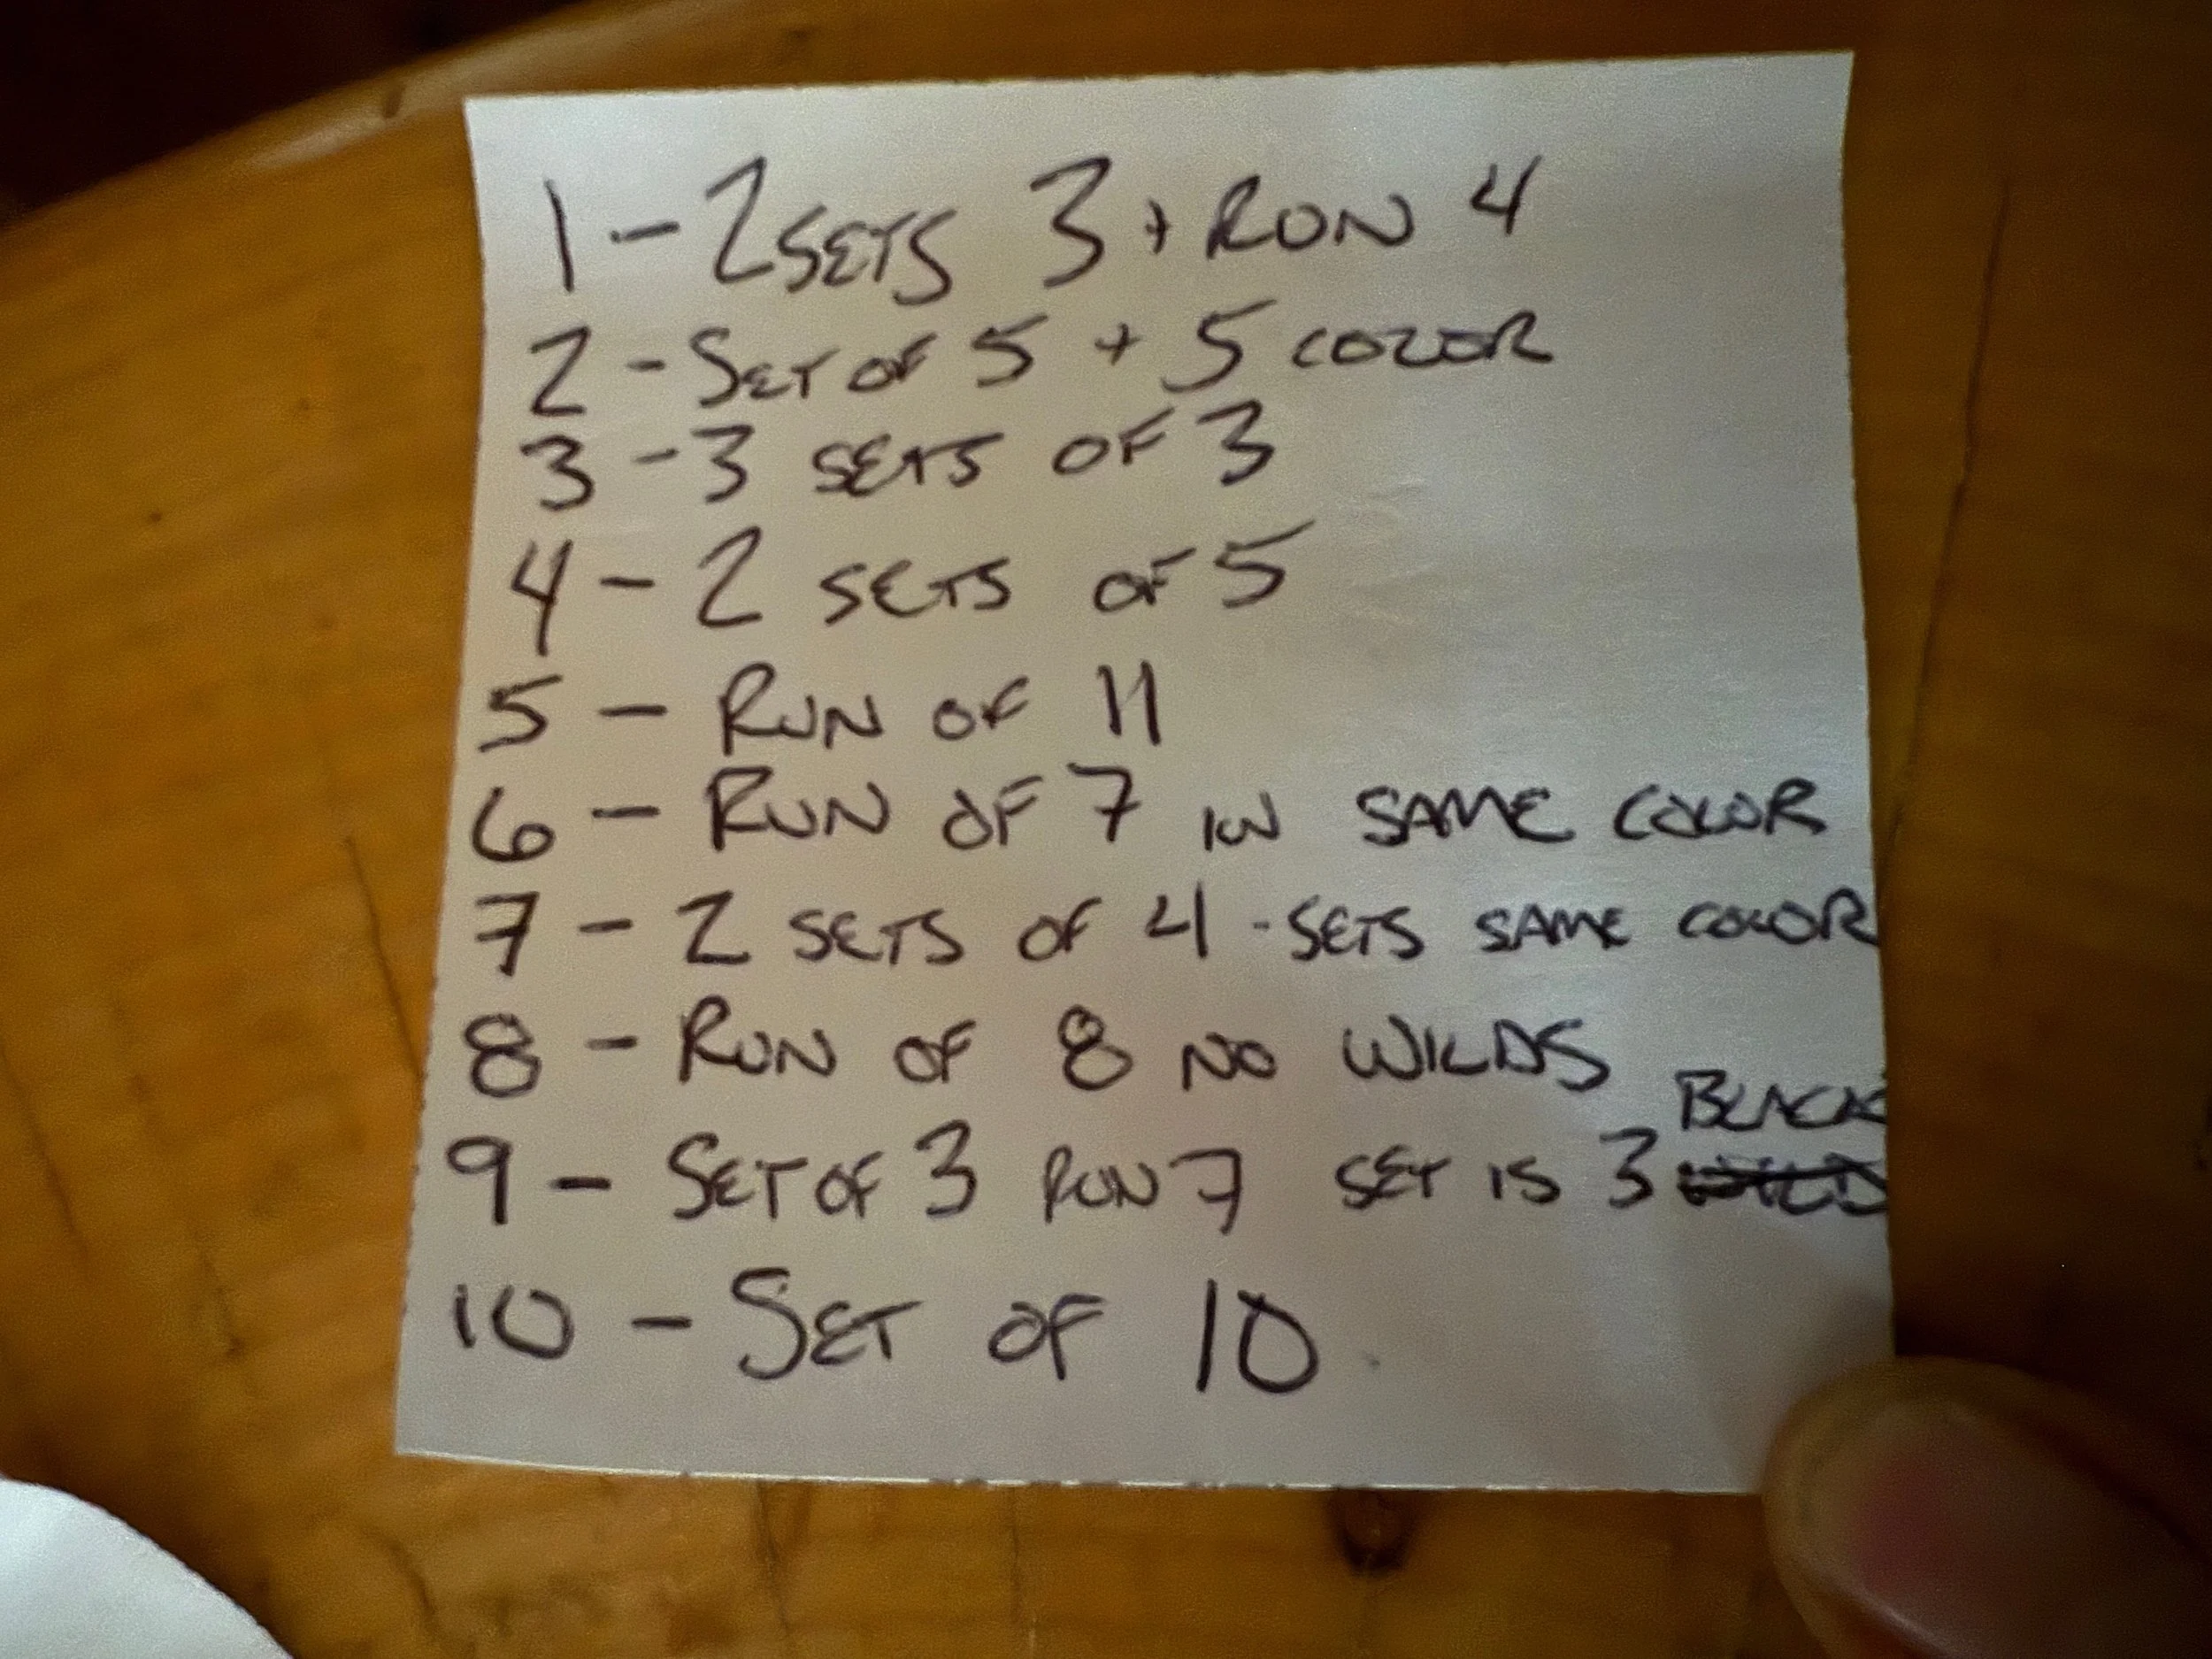 1 - 2 SETS 3 + RUN 4
2 - SET OF 5 + 5 COLOR
3 - 3 SETS OF 3
4 - 2 SETS OF 5
5 - RUN OF 11
6 - RUN OF 7 IN SAME COLOR
7 - 2 SETS OF 4 - SETS SAME COLOR
8 - RUN OF 8 NO WILDS
BLACK
9 - SET OF 3 RUN 7 SET IS 3
10 - SET OF 10